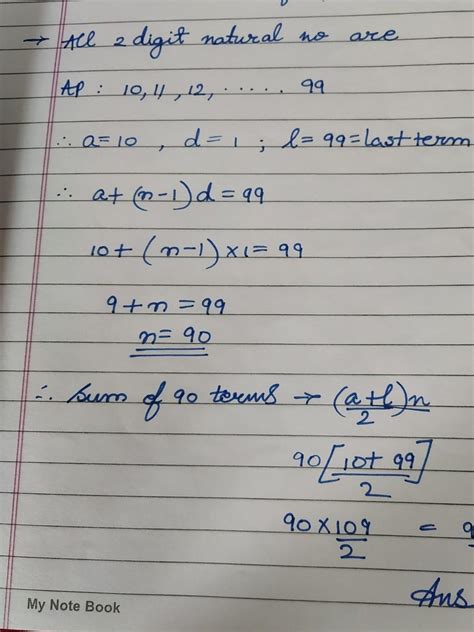 → All 2 digit natural no are
AP : 10, 11, 12, ...... 99
∴ a=10 , d=1 ; l=99=last term
∴ a+(n-1)d=99
10+(n-1)×1=99
9+n=99
n=90
∴ Sum of 90 terms → (a+l)n/2
90[10+99]/2
90×109/2 = 9
Ans
My Note Book